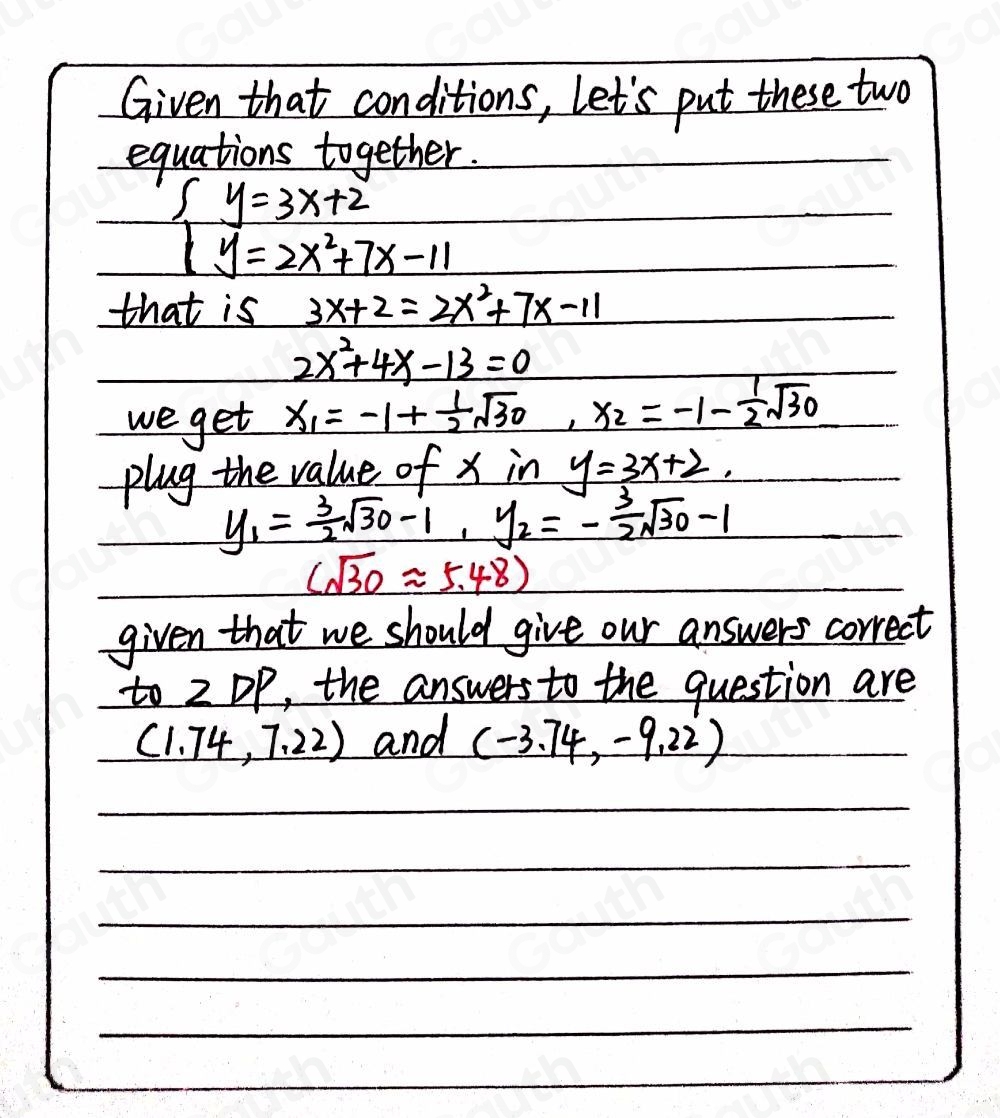 Given that conditions, let's put these two
equations together.
{ y=3x+2
y=2x²+7x-11
that is 3x+2=2x²+7x-11
2x²+4x-13=0
we get x₁=-1+½√30, x₂=-1-½√30
plug the value of x in y=3x+2.
y₁=3/2√30-1, y₂=-3/2√30-1
(√30≈5.48)
given that we should give our answers correct
to 2 DP, the answers to the question are
(1.74, 7.22) and (-3.74, -9.22)
Gauth